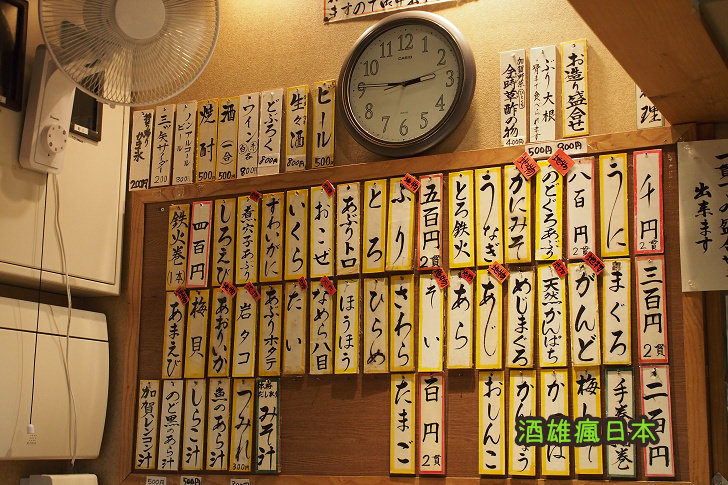 お造り盛合せ
ぶり大根
金時草酢の物
400円
500円
800円
CASIO
ビール
500
生々酒
800
どぶろく
800
ワイン
800
酒
焼酎
ノンアルコールビール
三ツ矢サイダー
200
200円
出来ます
千円
2貫
うに
八百円
2貫
のどぐろあぶり
かにみそ
うなぎ
とろ鉄火
五百円
2貫
ぶり
とろ
あぶりトロ
おこぜ
いくら
ずわいがに
煮穴子あぶり
しろえび
四百円
2貫
鉄火巻
三百円
2貫
まぐろ
がんど
天然かんぱち
めじまぐろ
あじ
あら
そい
さわら
ひらめ
ほうぼう
なめら八目
たい
あぶりホタテ
岩タコ
あおりいか
梅貝
あまえび
二百円
2貫
おしんこ
百円
2貫
たまご
みそ汁
つみれ
300円
魚のあら汁
しらこ汁
のど黒のあら汁
500円
加賀レンコン汁
500円
酒雄瘋日本